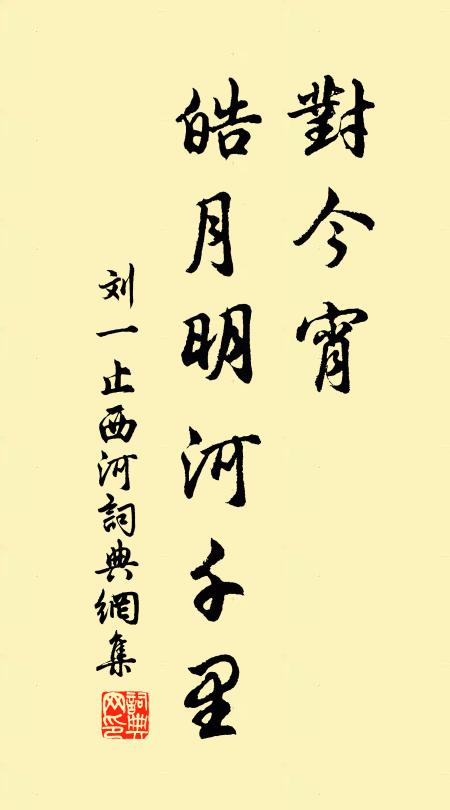 對今宵
皓月明河千里
刘一止西河詞典網集
詞典网印